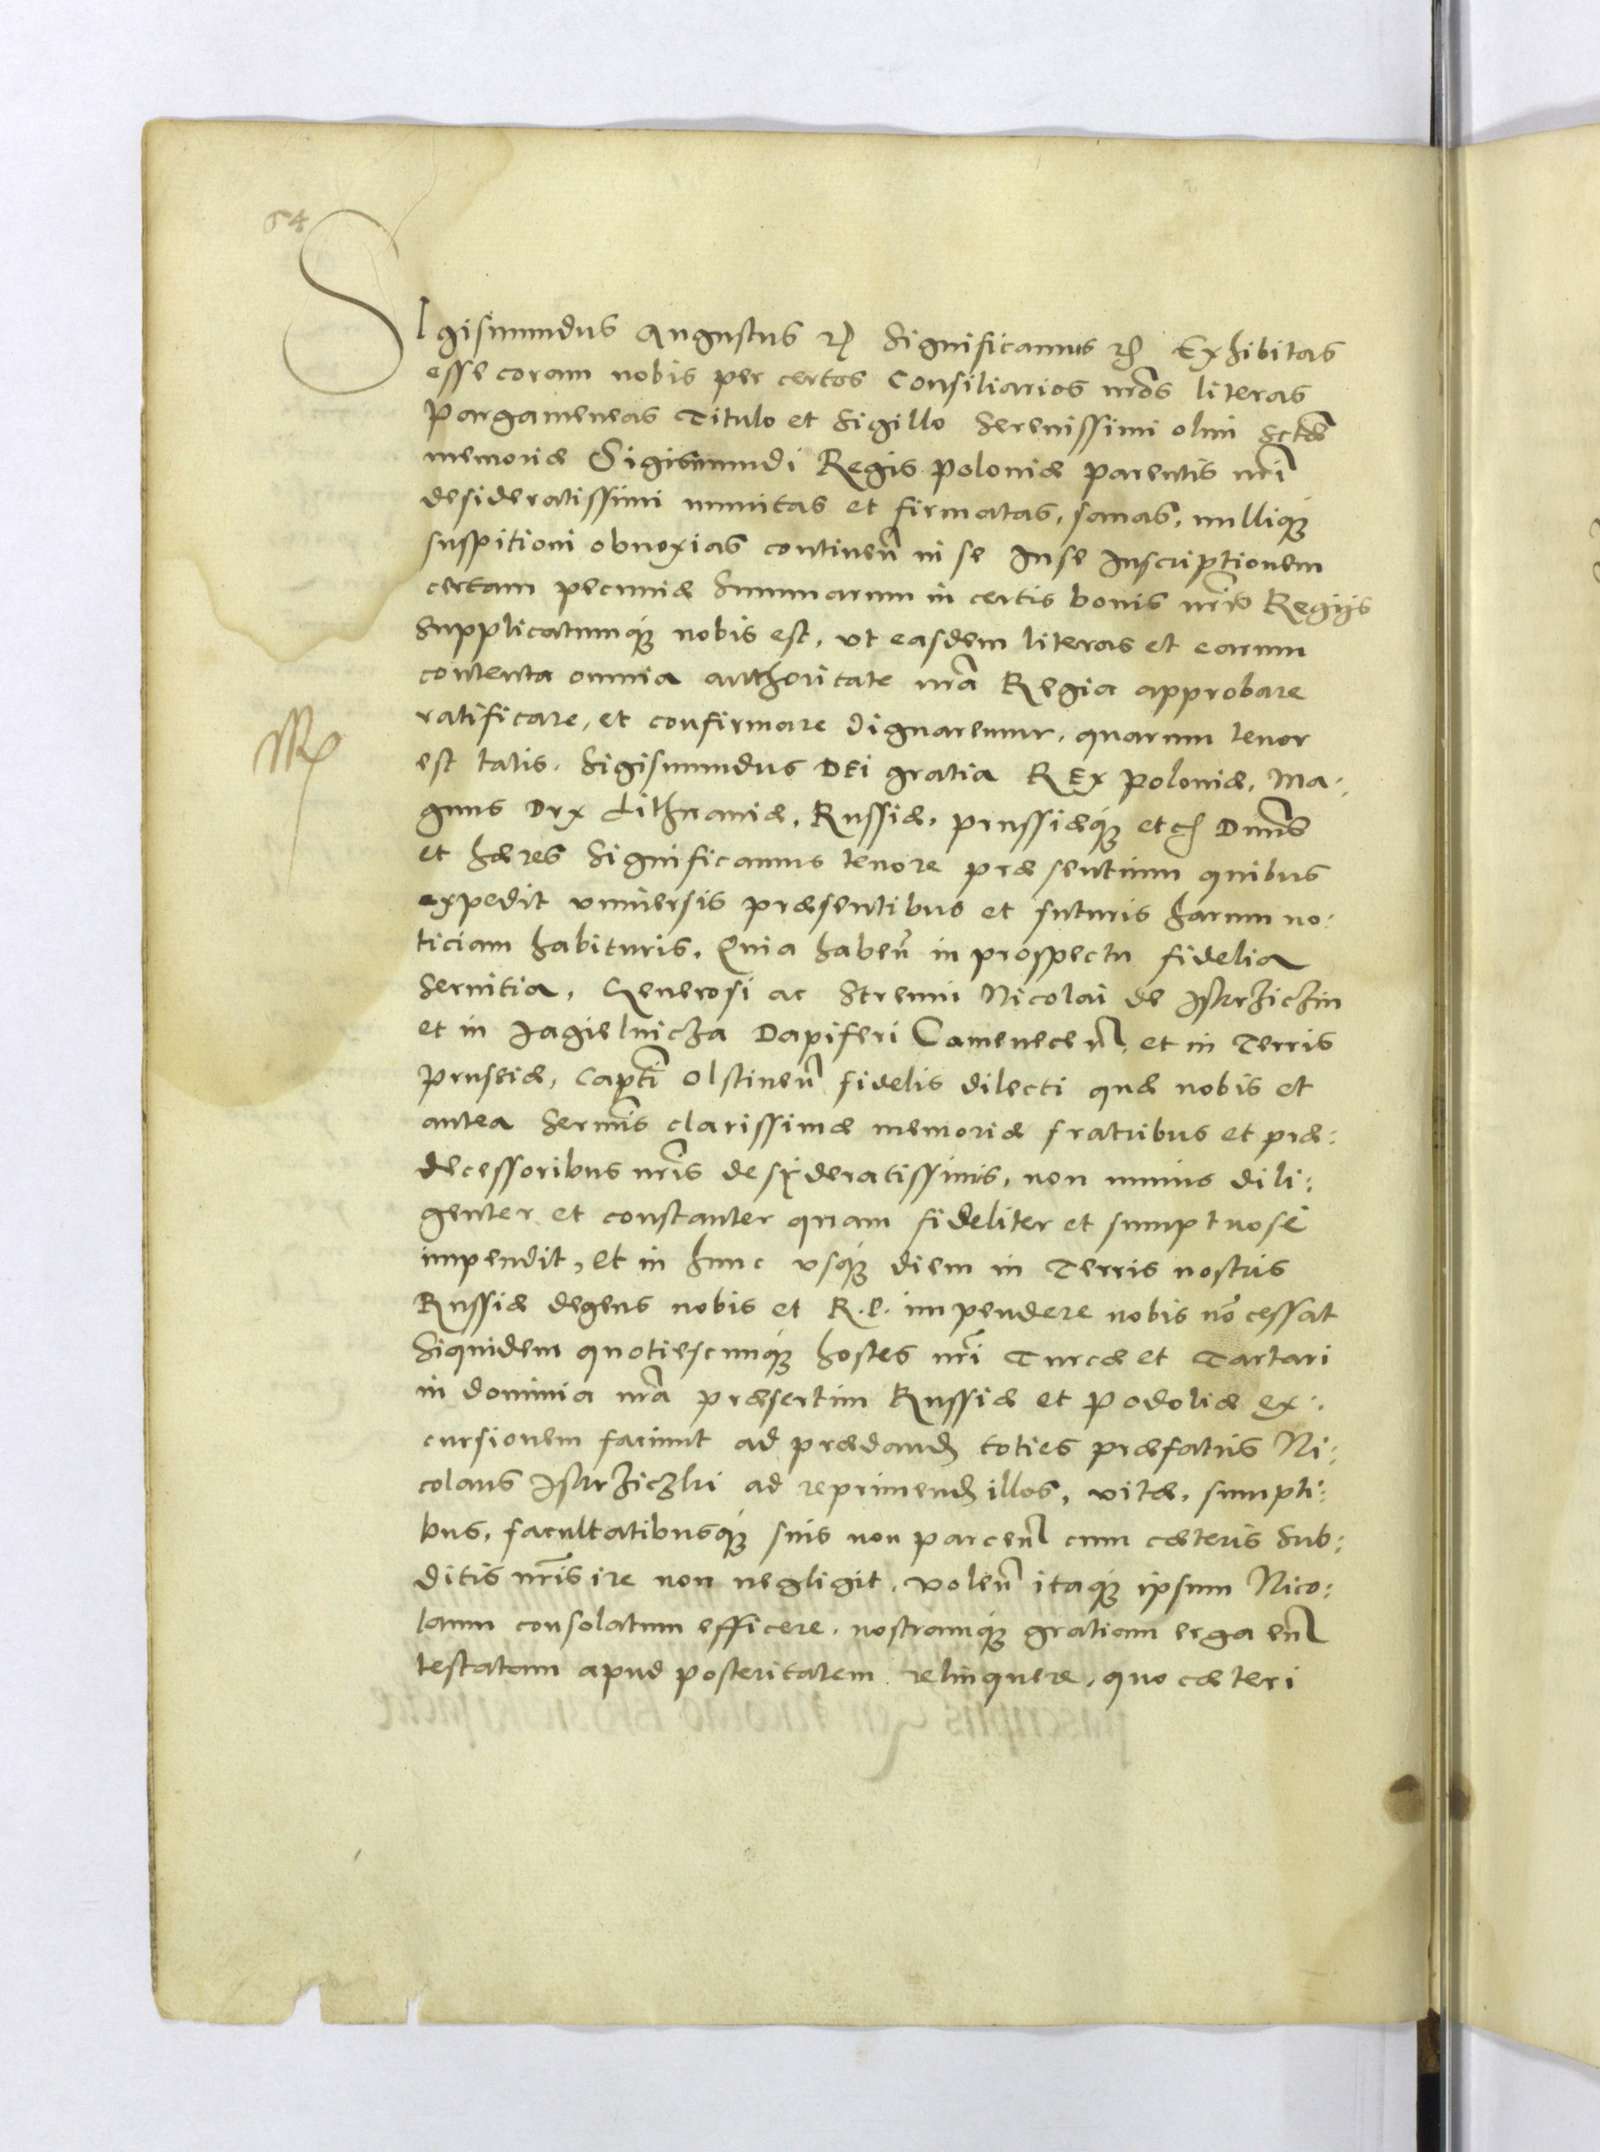 64
SIgismundus Augustus etc Significamus etc Exhibitas
esse coram nobis per certos Consiliarios nrōs literas
Pargameneas Titulo et Sigillo Serenissimi olim sctæ
memoriæ Sigismundi Regis Poloniæ parentis nrī
desideratissimi munitas et firmatas, sanas, nulliq́ꝫ
suspitioni obnoxias continen̄ in se Inse Inscriptionem
certam pecuniæ Summarum in certis bonis nrīs Regijs
Supplicatumq́ꝫ nobis est, vt easdem literas et earum
contenta omnia authoritate nrā Regia approbare
ratificare, et confirmare dignaremur, quarum tenor
est talis. Sigismundus DEi gratia REx Poloniæ, Ma-
gnus Dvx Lithuaniæ, Russiæ, Prussiæq́ꝫ etc Dnns
et hæres Significamus tenore præsentium quibus
expedit vniuersis præsentibus et futuris harum no-
ticiam habituris, Quia haben̄ in prospectu fidelia
Seruitia, Generosi ac Strenui Nicolai de Iskrziczin
et in Jagielnicza Dapiferi Camenecen̄, et in Terris
Prussiæ, Captī Olstinen̄ fidelis dilecti quæ nobis et
antea Sermīs clarissimæ memoriæ fratribus et præ:
decessoribus nrīs desyderatissimis, non minus dili:
genter et constanter quam fideliter et sumptuosè
impendit, et in hunc vsq́ꝫ diem in Terris nostris
Russiæ degens nobis et R. P. impendere nobis nō cessat
Siquidem quotiescunq́ꝫ hostes nrī Turcæ et Tartari
in dominia nrā præsertim Russiæ et Podoliæ ex-
cursionem faciunt ad prædand toties præfatus Ni:
colaus Iskrziczki ad reprimend illos, vitæ, sumpti:
bus, facultatibusq́ꝫ suis non parcen̄ cum cæteris Sub:
ditis nrīs ire non negligit. Volen̄ itaq́ꝫ ipsum Nico:
laum consolatum efficere, nostramq́ꝫ gratiam erga eu̅
testatam apud posteritatem relinquere, quo cæteri